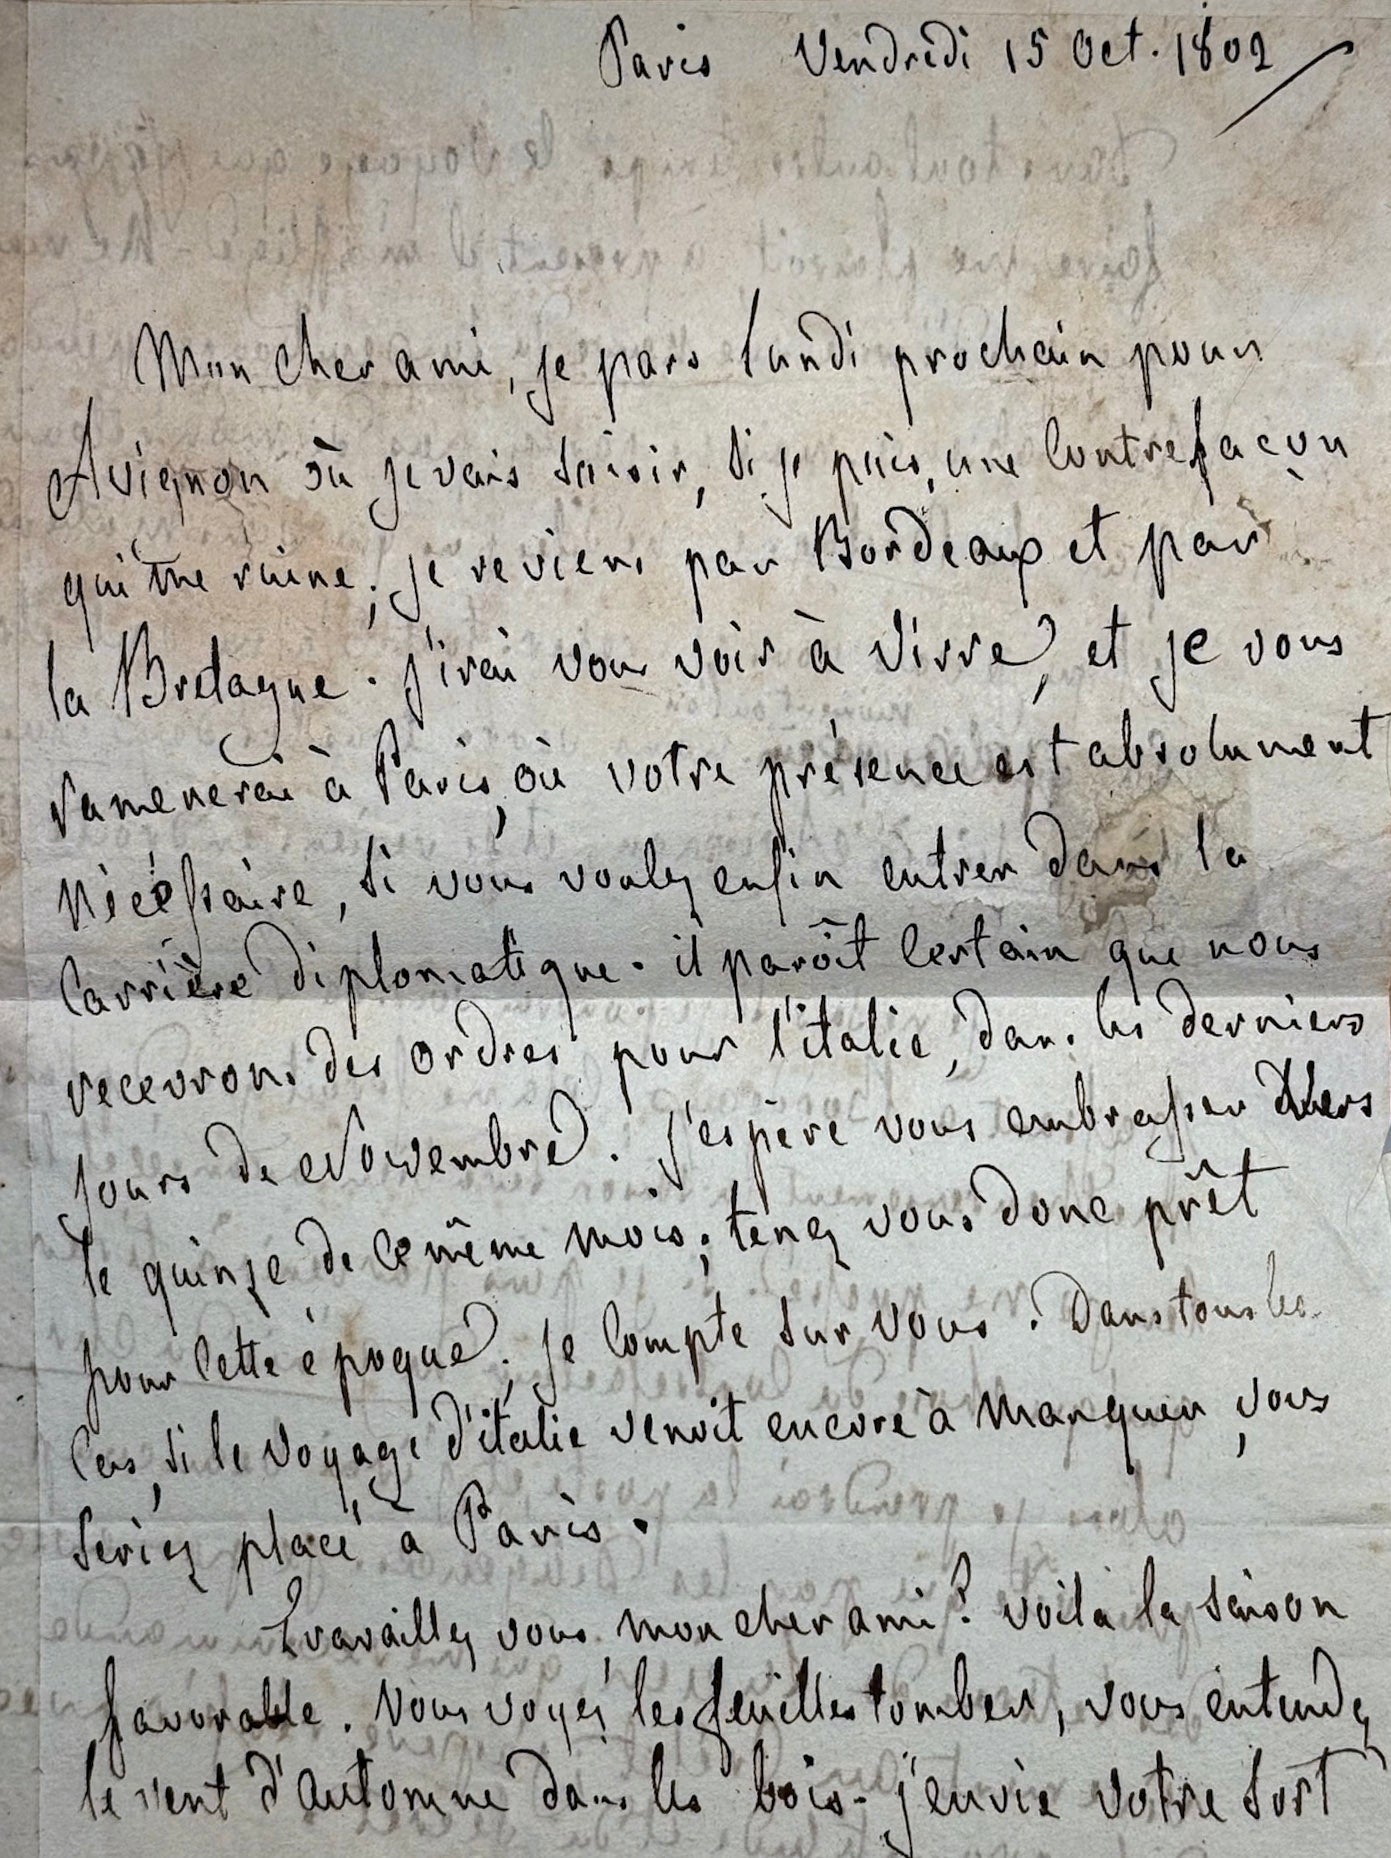 Paris Vendredi 15 Oct. 1802
Mon cher ami, je pars lundi prochain pour
Avignon où je vais saisir, si je puis, une contrefaçon
qui me ruine ; je reviens par Bordeaux et par
la Bretagne. j'irai vous voir à Virre, et je vous
ramenerai à Paris, où votre présence est absolument
nécéssaire, si vous voulez enfin entrer dans la
carrière diplomatique. il paroît certain que nous
recevrons des ordres pour l'italie, dans les derniers
jours de Novembre. j'espère vous embrasser vers
le quinze de ce même mois ; tenez vous donc prêt
pour cette époque ; je compte sur vous. Dans tous les
cas, si le voyage d'italie venoit encore à manquer, vous
seriez placé à Paris.
Travaillez vous, mon cher ami ? voila la saison
favorable. Vous voyez les feuilles tomber, vous entendez
le vent d'automne dans les bois. j'envie votre sort